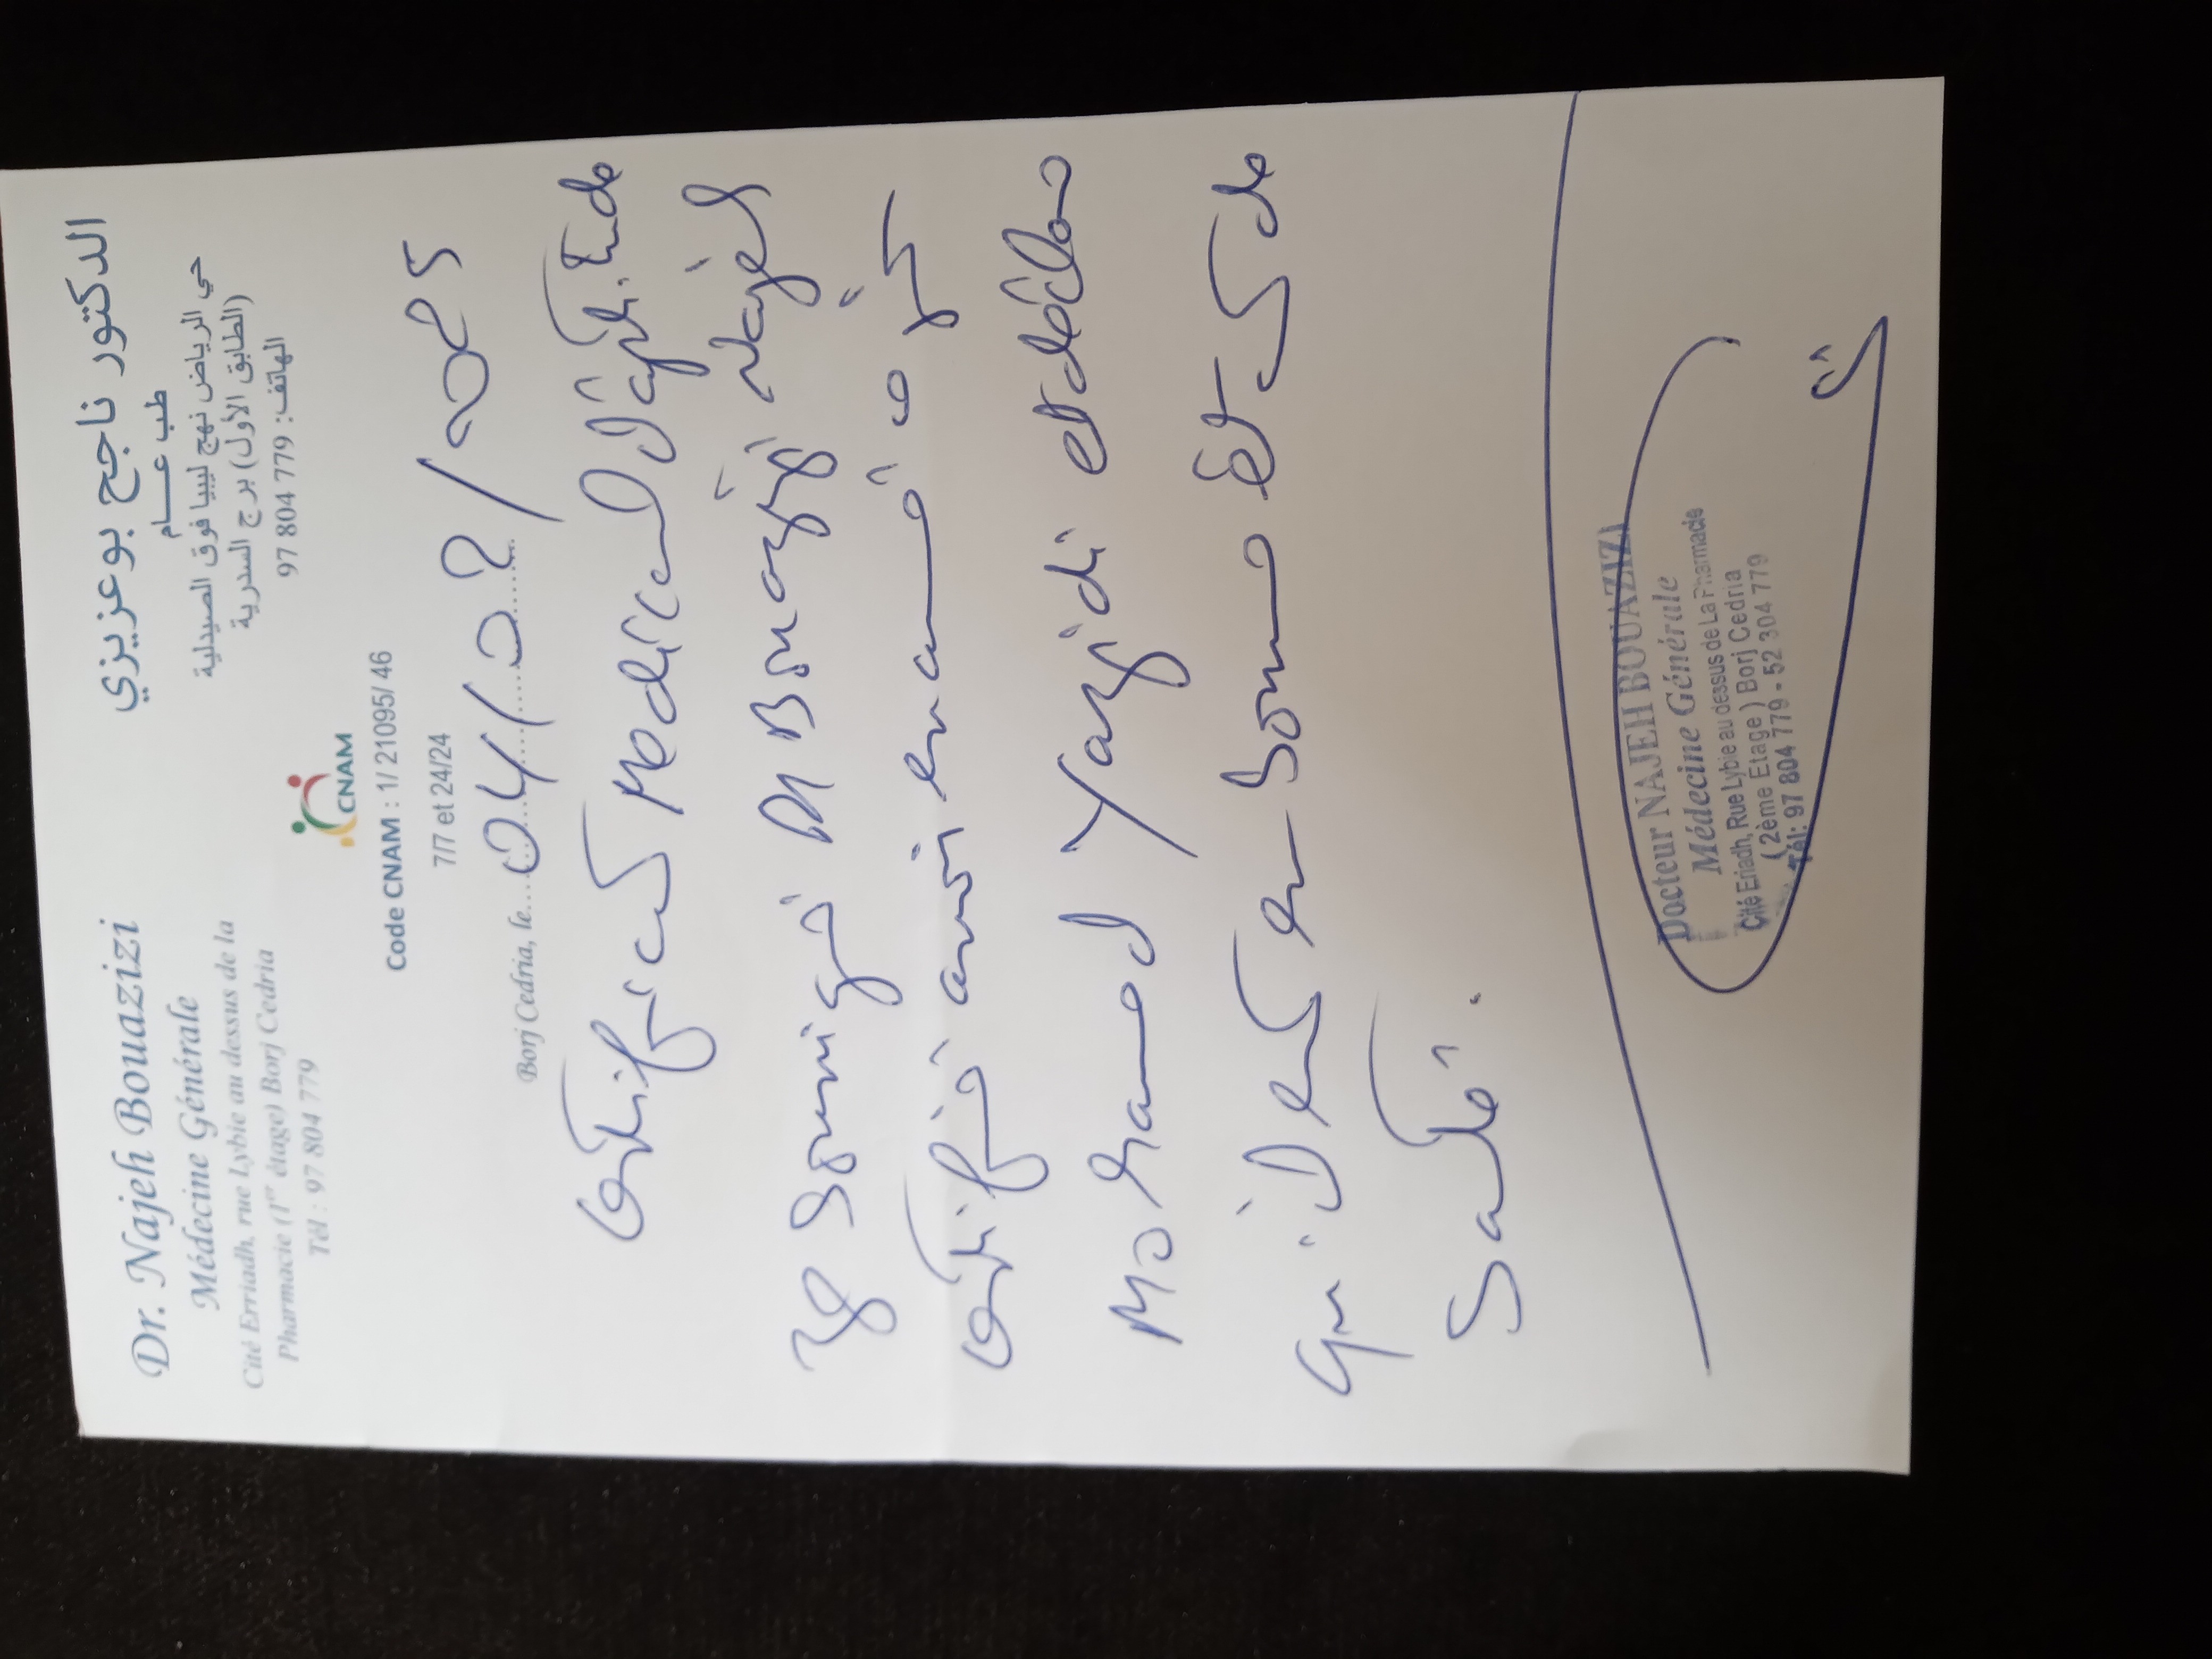 Dr. Najeh Bouazizi
Médecine Générale
Cité Erriadh, rue Lybie au dessus de la
Pharmacie (1er étage) Borj Cedria
Tél : 97 804 779
الدكتور ناجح بوعزيزي
طب عـــام
حي الرياض نهج ليبيا فوق الصيدلية
(الطابق الأول) برج السدرية
الهاتف: 779 804 97
CNAM
Code CNAM : 1/ 21095/ 46
7/7 et 24/24
Borj Cedria, le... 04/02/2025
Certificat Médical d'aptitude
Je soussigné Dr Bouazizi Najeh
certifie avoir examiné ce jour
Mohamed Yazidi et déclare
qu'il est en bonne Et de
Santé.
Docteur NAJEH BOUAZIZI
Médecine Générale
Cité Eriadh, Rue Lybie au dessus de La Pharmacie
(2ème Etage) Borj Cedria
Tél: 97 804 779 - 52 304 779